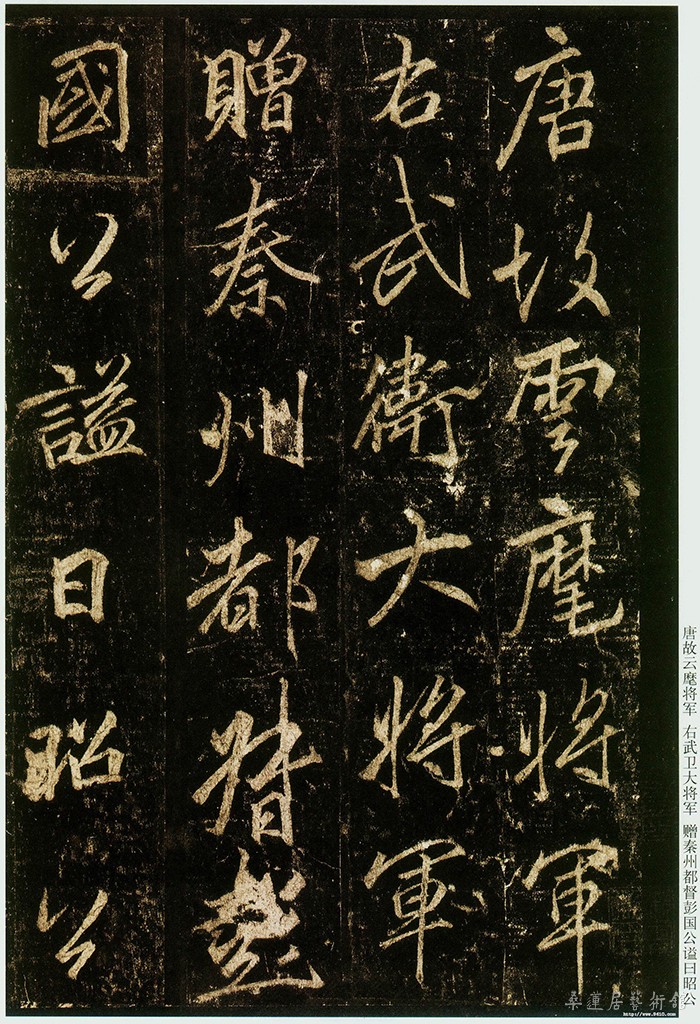 唐故雲麾將軍
右武衛大將軍
贈秦州都督彭
國公謚曰昭公
唐故云麾将军 右武卫大将军 赠秦州都督彭国公谥曰昭公
桑蓮居藝術館
http://www.9610.com